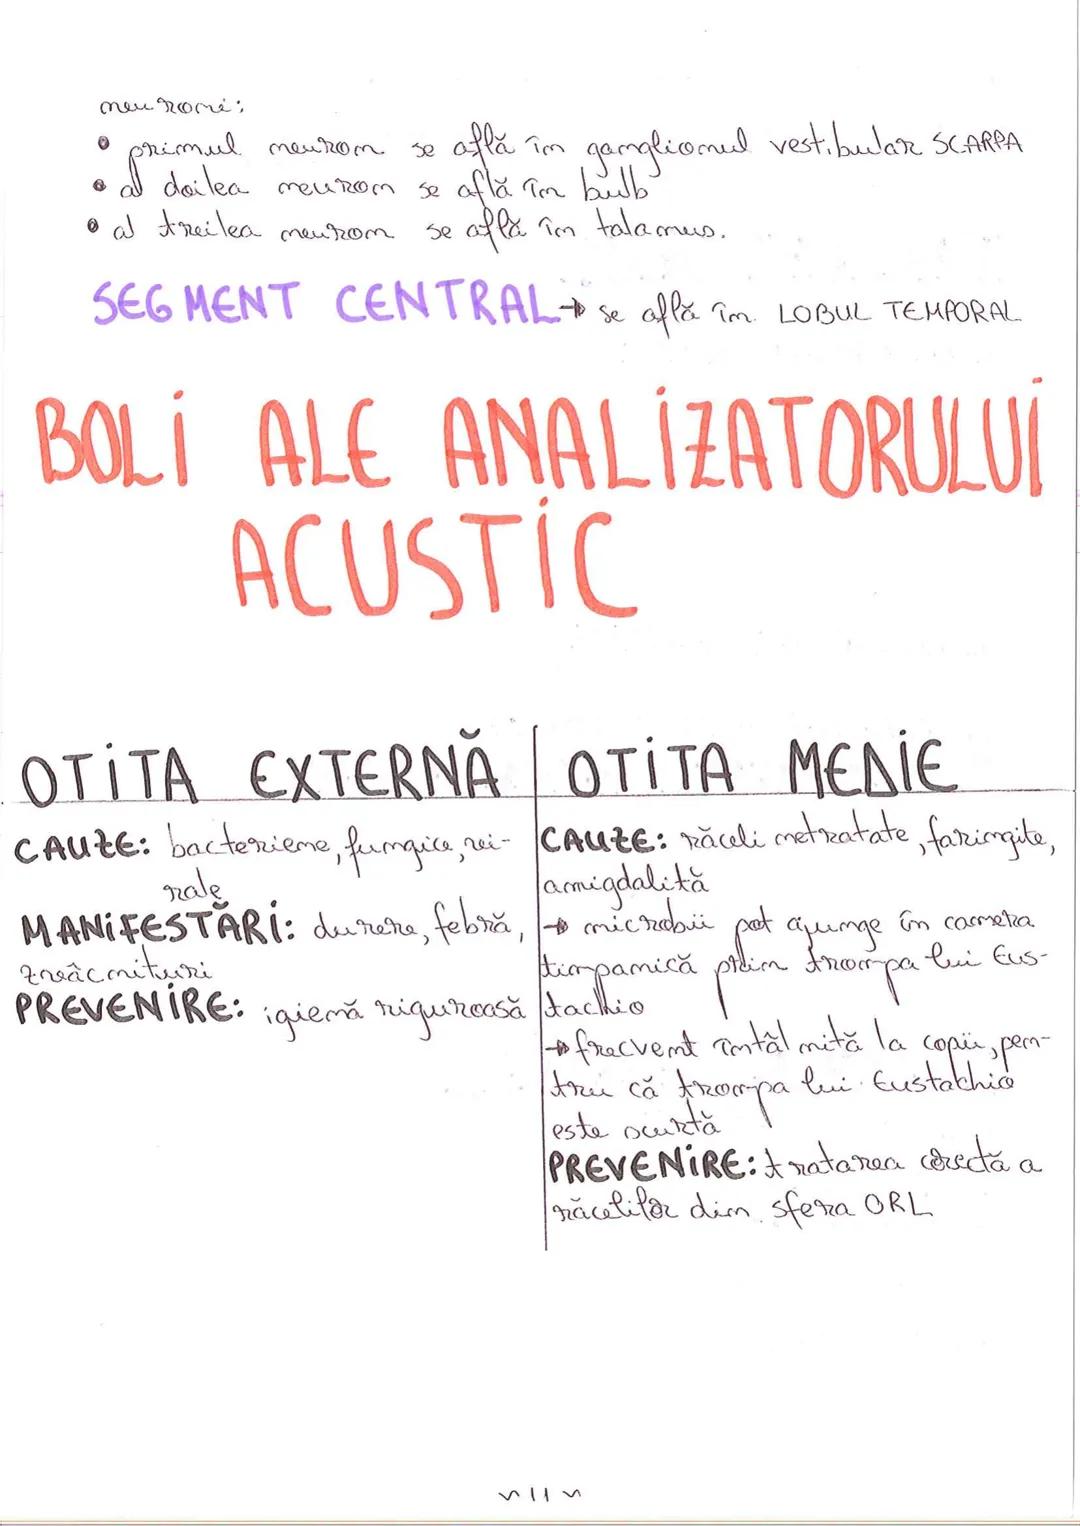 neuroni:
• primul neuron se află în ganglionul vestibular SCARPA
• al doilea neuron se află în bulb
• al treilea neuron se află în talamus.
SEGMENT CENTRAL → se află în LOBUL TEMPORAL
BOLI ALE ANALIZATORULUI
ACUSTIC
OTITA EXTERNĂ
CAUZE: bacteriene, fungice, vi-
rale
MANIFESTĂRI: durere, febră,
zvâcnituri
PREVENIRE: igienă riguroasă
OTITA MEDIE
CAUZE: răceli netratate, faringite,
amigdalită
→ microbii pot ajunge în camera
timpamică prin trompa lui Eus-
tachio
→ frecvent întâlnită la copii, pen-
tru că trompa lui Eustachio
este scurtă
PREVENIRE: tratarea corectă a
răcelilor din sfera ORL
~ 11 ~